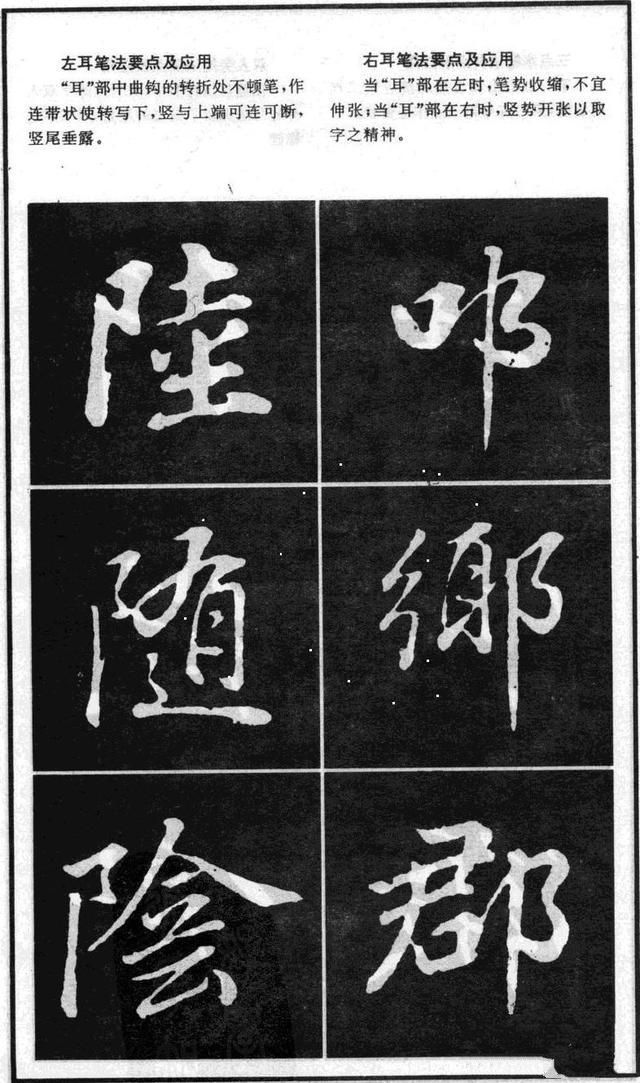 左耳笔法要点及应用
“耳”部中曲钩的转折处不顿笔，作
连带状使转写下，竖与上端可连可断，
竖尾垂露。
右耳笔法要点及应用
当“耳”部在左时，笔势收缩，不宜
伸张；当“耳”部在右时，竖势开张以取
字之精神。
陸
叩
随
鄉
陰
郡